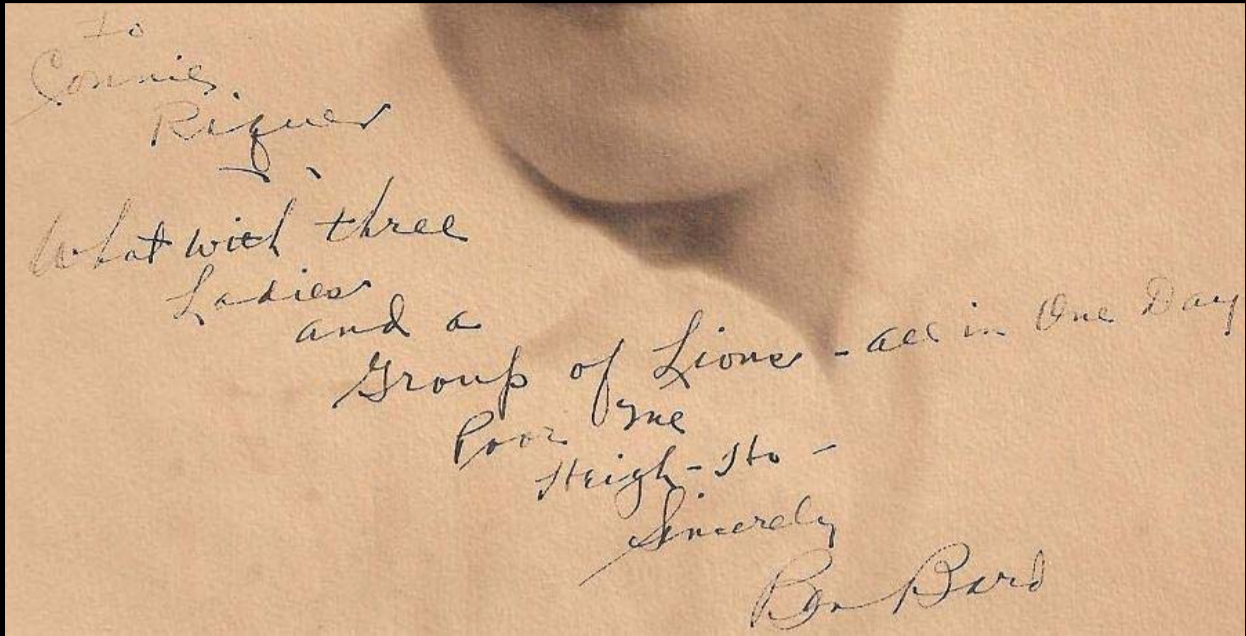 To
Connie
Riquer
What with three
Ladies
and a
Group of Lions - all in One Day
Poor me
Heigh-Ho -
Sincerely
Ben Bard